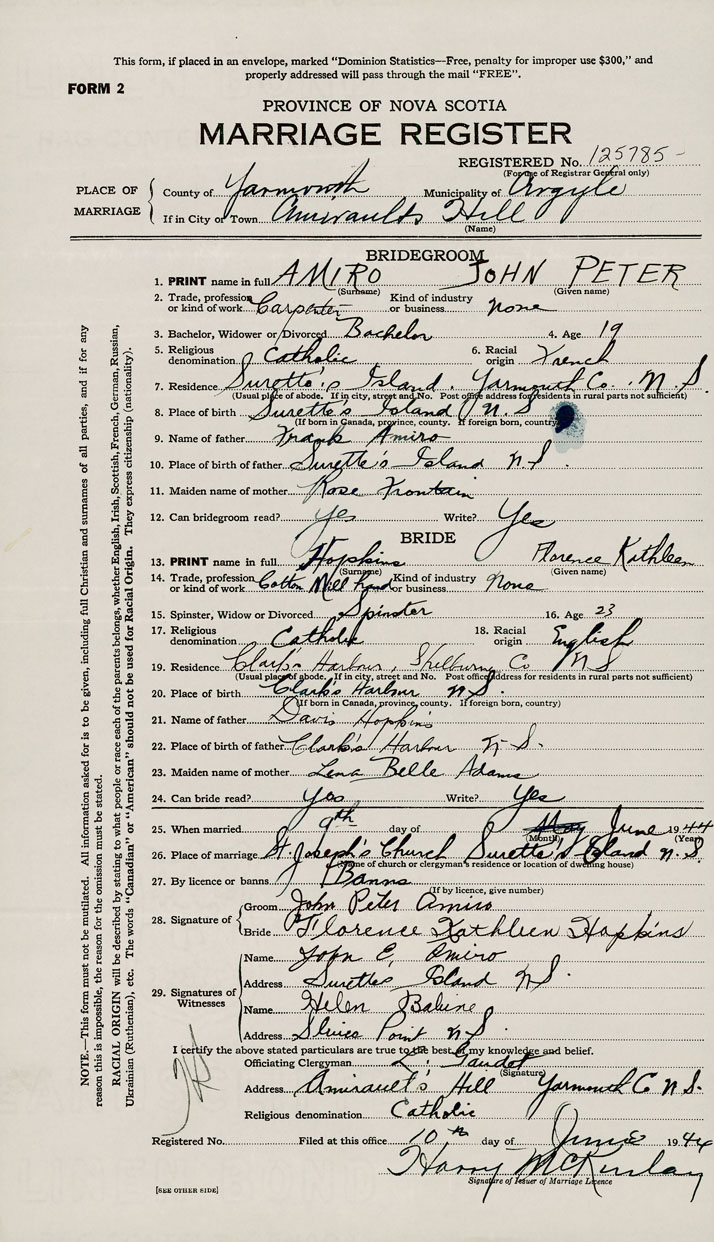 This form, if placed in an envelope, marked "Dominion Statistics—Free, penalty for improper use $300," and
properly addressed will pass through the mail "FREE".
FORM 2
PROVINCE OF NOVA SCOTIA
MARRIAGE REGISTER
REGISTERED No. 125785 -
(For use of Registrar General only)
PLACE OF MARRIAGE
County of Yarmouth Municipality of Argyle
If in City or Town Amiraults Hill
(Name)
BRIDEGROOM
1. PRINT name in full AMIRO JOHN PETER
(Surname) (Given name)
2. Trade, profession or kind of work Carpenter Kind of industry or business none
3. Bachelor, Widower or Divorced Bachelor 4. Age 19
5. Religious denomination Catholic 6. Racial origin French
7. Residence Surette's Island, Yarmouth Co. N.S.
(Usual place of abode. If in city, street and No. Post office address for residents in rural parts not sufficient)
8. Place of birth Surette's Island N.S.
(If born in Canada, province, county. If foreign born, country)
9. Name of father Frank Amiro
10. Place of birth of father Surette's Island N.S.
11. Maiden name of mother Rose Frontain
12. Can bridegroom read? yes Write? Yes
BRIDE
13. PRINT name in full Hopkins Florence Kathleen
(Surname) (Given name)
14. Trade, profession or kind of work Cotton Mill hand Kind of industry or business none
15. Spinster, Widow or Divorced Spinster 16. Age 23
17. Religious denomination Catholic 18. Racial origin English
19. Residence Clark's Harbour, Shelburne Co N S
(Usual place of abode. If in city, street and No. Post office address for residents in rural parts not sufficient)
20. Place of birth Clark's Harbour N.S.
(If born in Canada, province, county. If foreign born, country)
21. Name of father Davis Hopkins
22. Place of birth of father Clark's Harbour N.S.
23. Maiden name of mother Lena Belle Adams
24. Can bride read? Yes Write? Yes
25. When married 9th day of May June 1944
(Month) (Year)
26. Place of marriage St. Joseph's Church Surette's Island N.S.
(Name of church or clergyman's residence or location of dwelling house)
27. By licence or banns Banns
(If by licence, give number)
28. Signature of
Groom John Peter Amiro
Bride Florence Kathleen Hopkins
29. Signatures of Witnesses
Name John E. Amiro
Address Surettes Island N.S.
Name Helen Babine
Address Sluice Point N.S.
I certify the above stated particulars are true to the best of my knowledge and belief.
Officiating Clergyman L. Gaudet
(Signature)
Address Amirault's Hill Yarmouth C N.S.
Religious denomination Catholic
Registered No. Filed at this office 10th day of June 1944
Harry McKinlay
Signature of Issuer of Marriage Licence
[SEE OTHER SIDE]
NOTE.—This form must not be mutilated. All information asked for is to be given, including full Christian and surnames of all parties, and if for any
reason this is impossible, the reason for the omission must be stated.
RACIAL ORIGIN will be described by stating to what people or race each of the parents belongs, whether English, Irish, Scottish, French, German, Russian,
Ukrainian (Ruthenian), etc. The words "Canadian" or "American" should not be used for Racial Origin. They express citizenship (nationality).